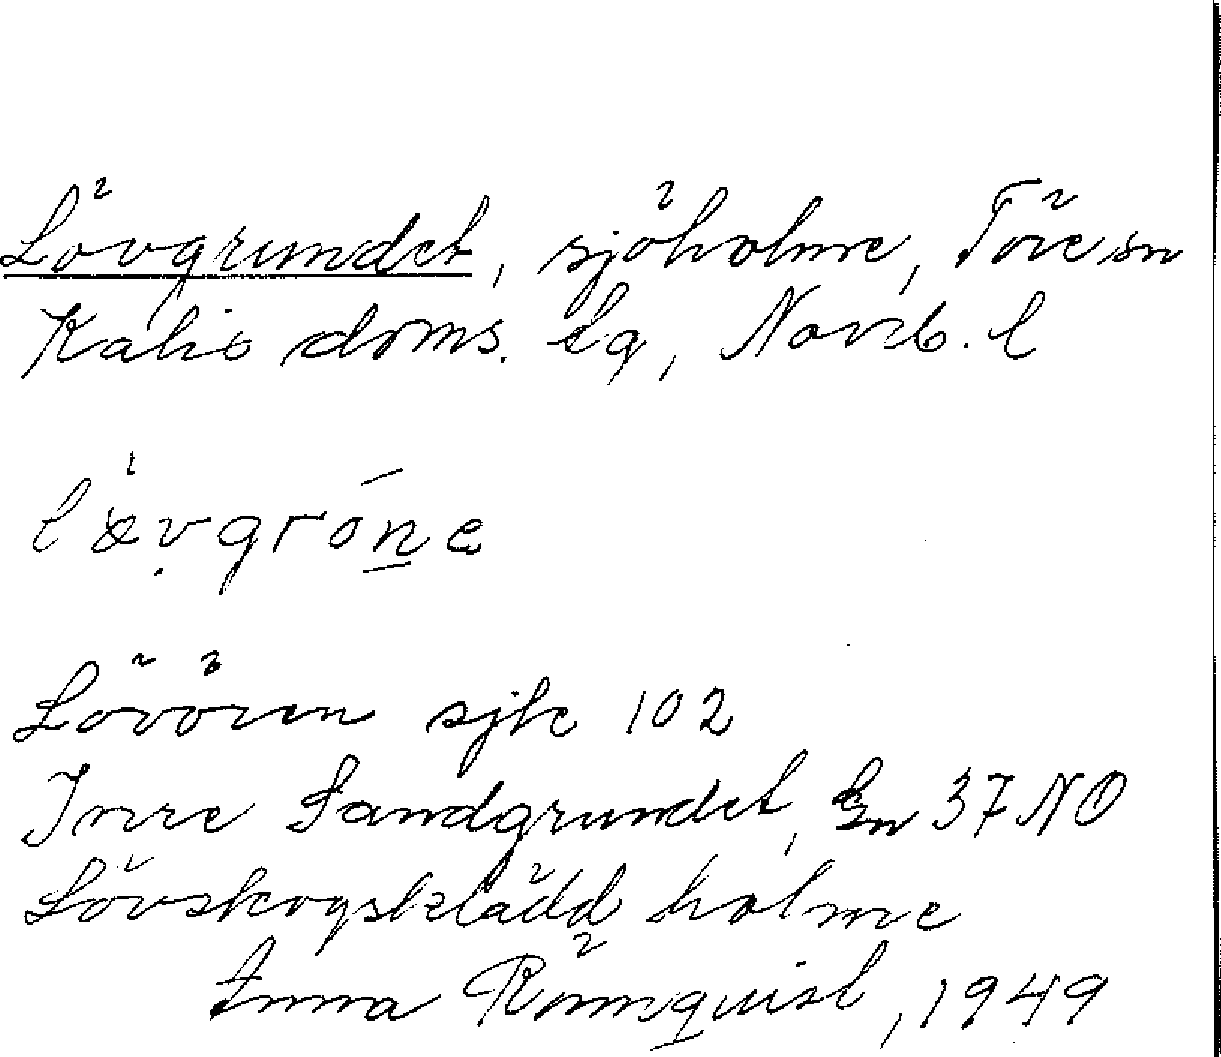 Lövgrundet, sjöholme, Töre sn
Kalix doms. lg, Norrb. l
lǻvgróne
Lövören sjk 102
Inre Sandgrundet, En 37 NO
Lövskogsklädd holme
Anna Rönnquist, 1949